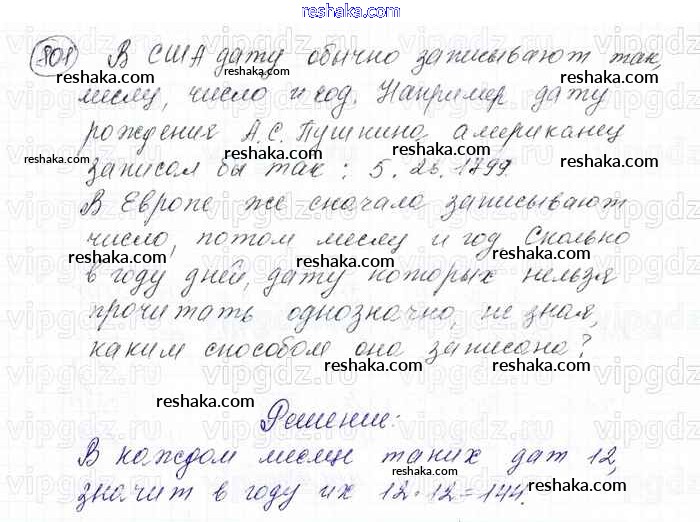 reshaka.com
801 В США дату обычно записывают так,
reshaka.com reshaka.com reshaka.com
месяц, число и год. Например дату
рождения А.С. Пушкина американец
reshaka.com reshaka.com reshaka.com
записал бы так: 5.26.1799.
В Европе же сначала записывают
reshaka.com reshaka.com reshaka.com
число, потом месяц и год Сколько
в году дней, дату которых нельзя
reshaka.com reshaka.com reshaka.com
прочитать однозначно, не зная,
каким способом она записана?
reshaka.com reshaka.com reshaka.com
reshaka.com reshaka.com
Решение:
В каждом месяце таких дат 12,
reshaka.com reshaka.com
значит в году их 12·12=144.
reshaka.com